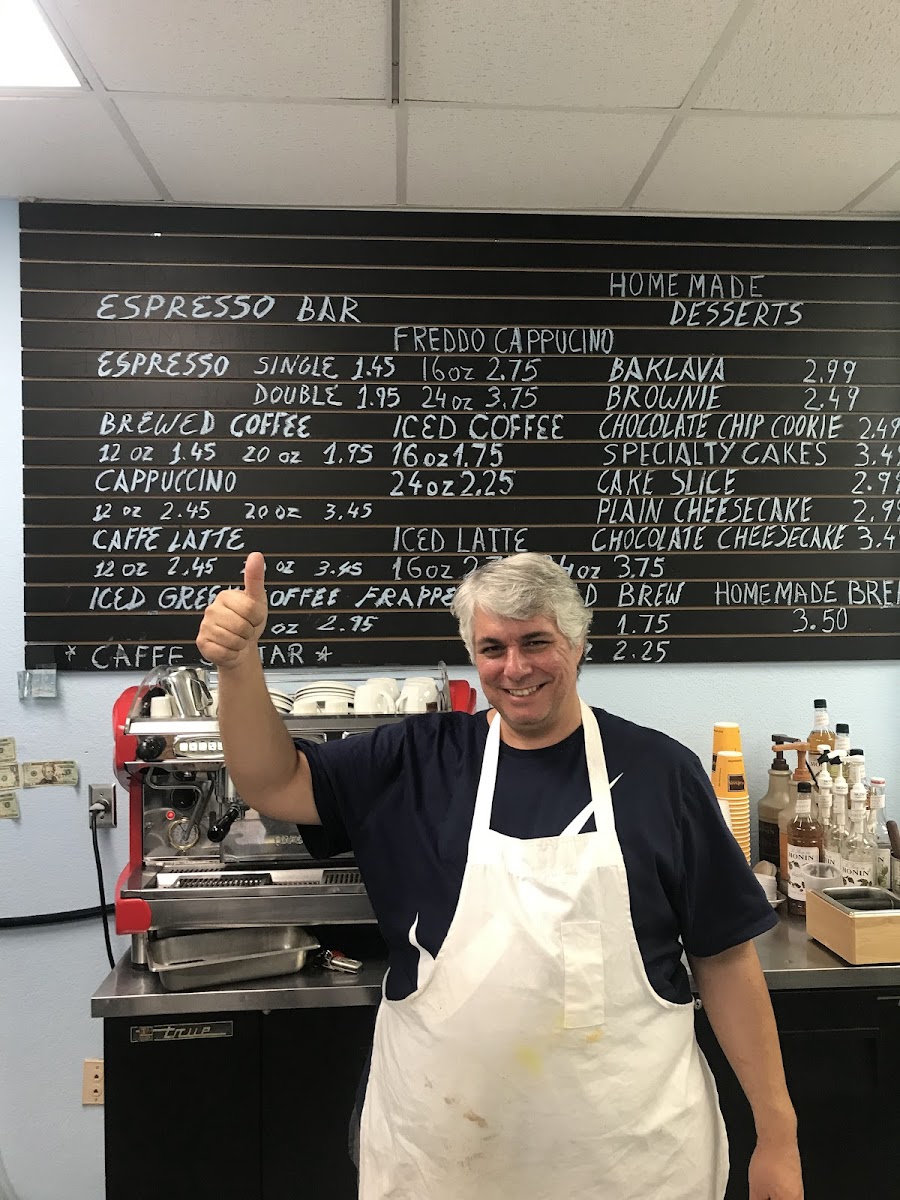 ESPRESSO BAR
ESPRESSO SINGLE 1.45
DOUBLE 1.95
BREWED COFFEE
12 oz 1.45 20 oz 1.95
CAPPUCCINO
12 oz 2.45 20 oz 3.45
CAFFE LATTE
12 oz 2.45 oz 3.45
ICED GREEK COFFEE FRAPPE
oz 2.95
* CAFFE TAR *
FREDDO CAPPUCINO
16oz 2.75
24oz 3.75
ICED COFFEE
16oz 1.75
24oz 2.25
ICED LATTE
16oz 2.7 4oz 3.75
D BREW
1.75
2.25
HOMEMADE
DESSERTS
BAKLAVA 2.99
BROWNIE 2.49
CHOCOLATE CHIP COOKIE 2.49
SPECIALTY CAKES 3.4
CAKE SLICE 2.9
PLAIN CHEESECAKE 2.9
CHOCOLATE CHEESECAKE 3.4
HOMEMADE BRE
3.50
true
MONIN
MONIN